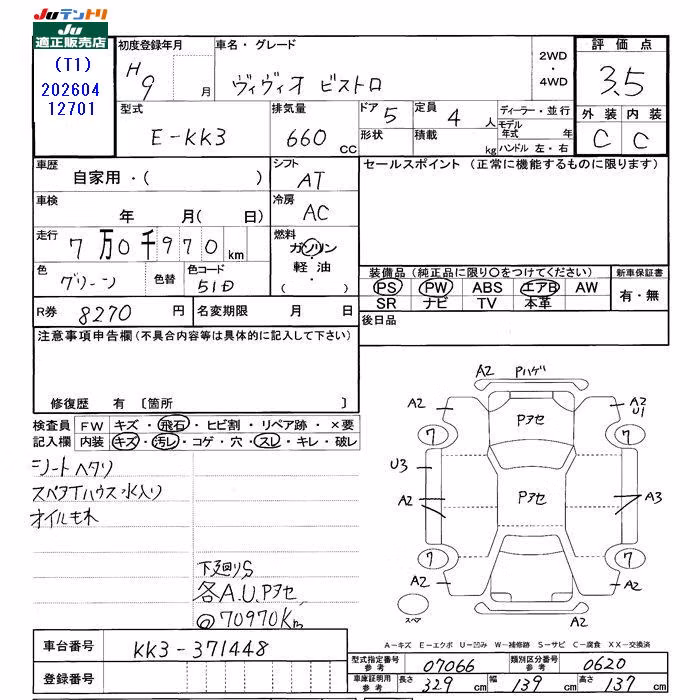 Juテントリ
Ju
適正販売店
(T1)
202604
12701
初度登録年月 H9 月
車名・グレード ヴィヴィオ ビストロ
2WD・4WD
評価点 3.5
外装 C 内装 C
型式 E-KK3
排気量 660 cc
ドア 5
形状
定員 4 人
積載 kg
ディーラー・並行
モデル年式 年
ハンドル 左・右
車歴 自家用・( )
シフト AT
セールスポイント (正常に機能するものに限ります)
車検 年 月( 日)
冷房 AC
走行 7万0千970km
燃料 ガソリン・軽油・( )
色 グリーン 色替
色コード 51D
装備品(純正品に限り○をつけてください)
PS PW ABS エアB AW
SR ナビ TV 本革
新車保証書 有・無
R券 8270 円
名変期限 月 日
後日品
注意事項申告欄(不具合内容等は具体的に記入して下さい)
修復歴 有 〔箇所 〕
検査員記入欄
FW キズ・飛石・ヒビ割・リペア跡・×要
内装 キズ・汚レ・コゲ・穴・スレ・キレ・破レ
シートヘタリ
スペアTハウス水入り
オイルモレ
下廻りS
各A.U.Pアセ
@70970Km
A2 Pハゲ
A2 Pアセ A2 U1
7 7
U3
A2 Pアセ A3
7 7
A2 A2
スペア
A-キズ E-エクボ U-凹み W-補修跡 S-サビ C-腐食 XX-交換済
車台番号 KK3-371448
登録番号
型式指定番号 参考 07066
類別区分番号 参考 0620
車庫証明用 参考 長さ 329 cm 幅 139 cm 高さ 137 cm